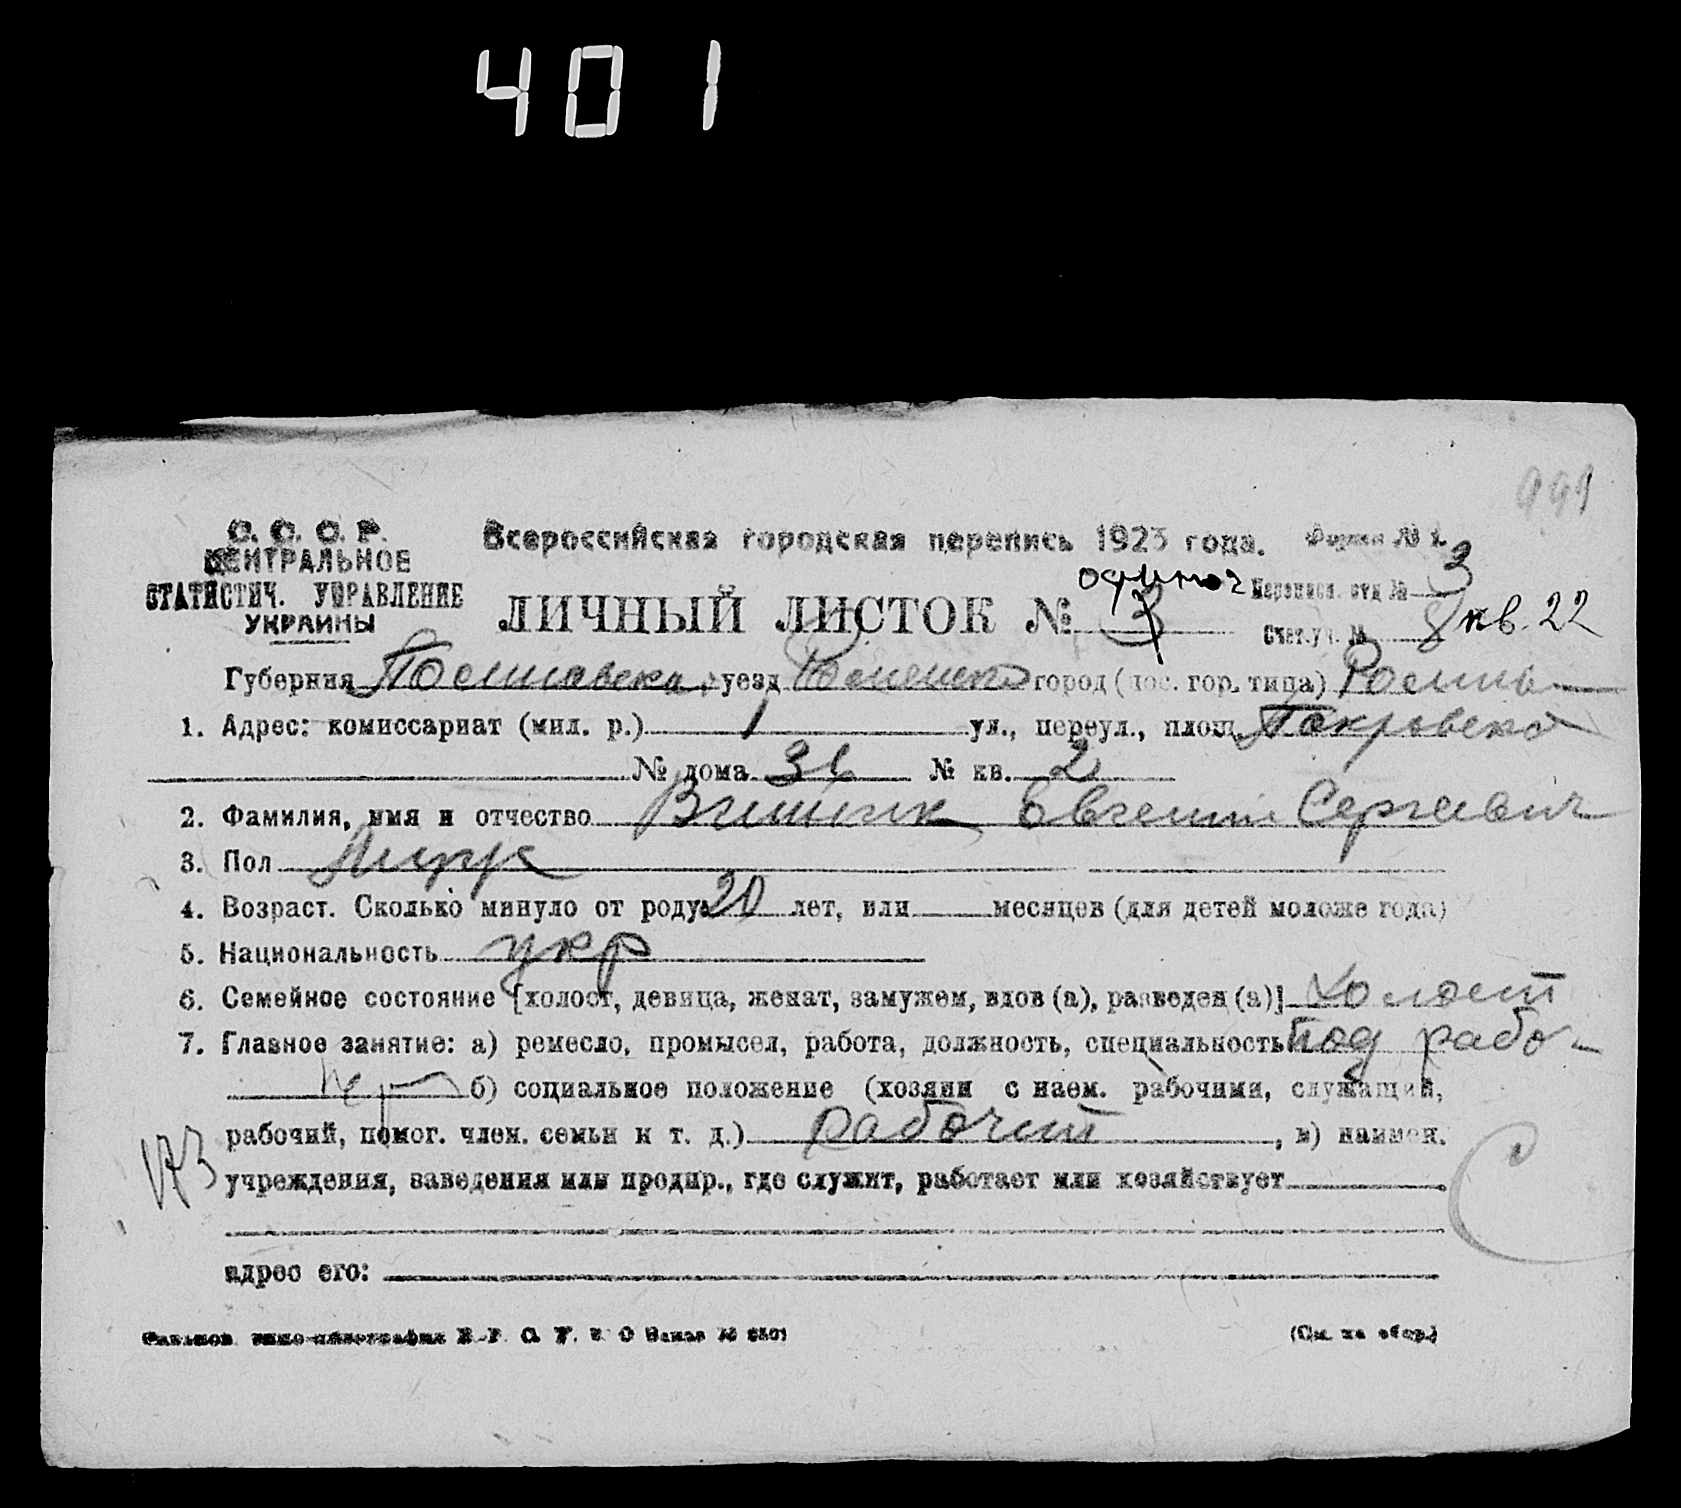 401
991
С. С. С. Р.
ЦЕНТРАЛЬНОЕ
СТАТИСТИЧ. УПРАВЛЕНИЕ
УКРАИНЫ
Всероссийская городская перепись 1923 года. Форма № 1.
ЛИЧНЫЙ ЛИСТОК № 3 одиноч
Переписн. отд № 3
Счет. уч. № 8 кв. 22
Губерния Полтавска уезд Роменско город (пос. гор. типа) Ромны
1. Адрес: комиссариат (мил. р.) 1 ул., переул., площ. Покровско
№ дома 31 № кв. 2
2. Фамилия, имя и отчество Евгений Сергеевич
3. Пол Мужс
4. Возраст. Сколько минуло от роду: 20 лет, или месяцев (для детей моложе года)
5. Национальность укр
6. Семейное состояние [холост, девица, женат, замужем, вдов (а), разведен (а)] холост
7. Главное занятие: а) ремесло, промысел, работа, должность, специальность под рабо-
чер б) социальное положение (хозяин с наем. рабочими, служащий,
рабочий, помог. член. семьи и т. д.) рабочий, в) наимен.
173
учреждения, заведения или предпр., где служит, работает или хозяйствует
С
адрес его:
(См. на обор.)